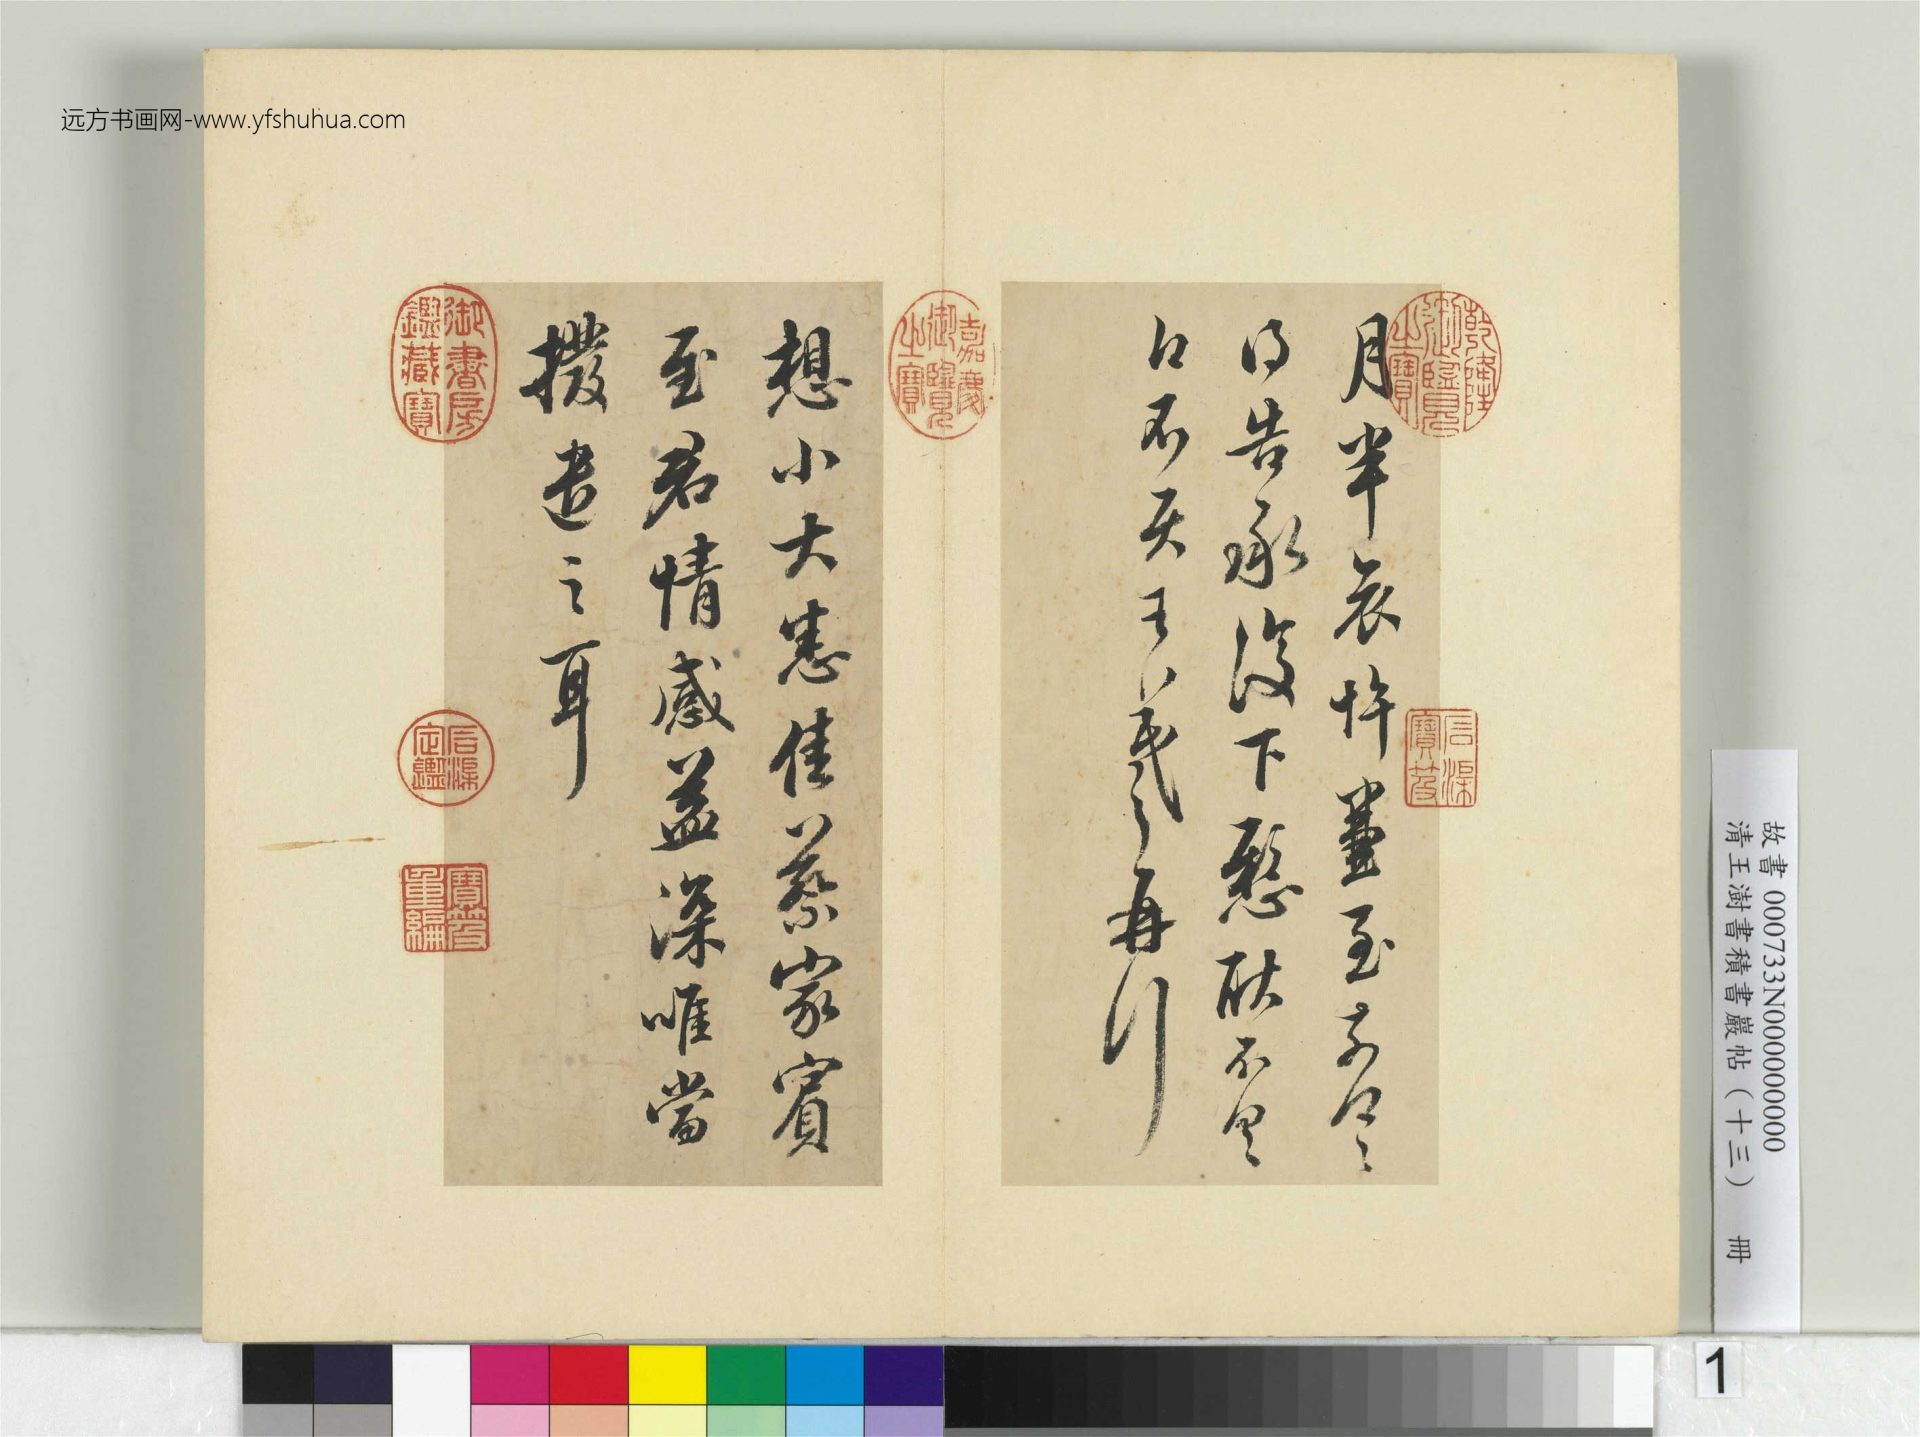 远方书画网-www.yfshuhua.com
月半哀悼兼至奈何〻
得告承復下懸耿不具〻
不 王羲之再拜
想小大悉佳蔡家賓
至君情感益深唯當
撥遣之耳
乾隆御覽之寶
石渠寶笈
嘉慶御覽之寶
御書房鑑藏寶
石渠定鑑
寶笈重編
故書 000733N000000000
清王澍書積書巖帖（十三） 冊
1